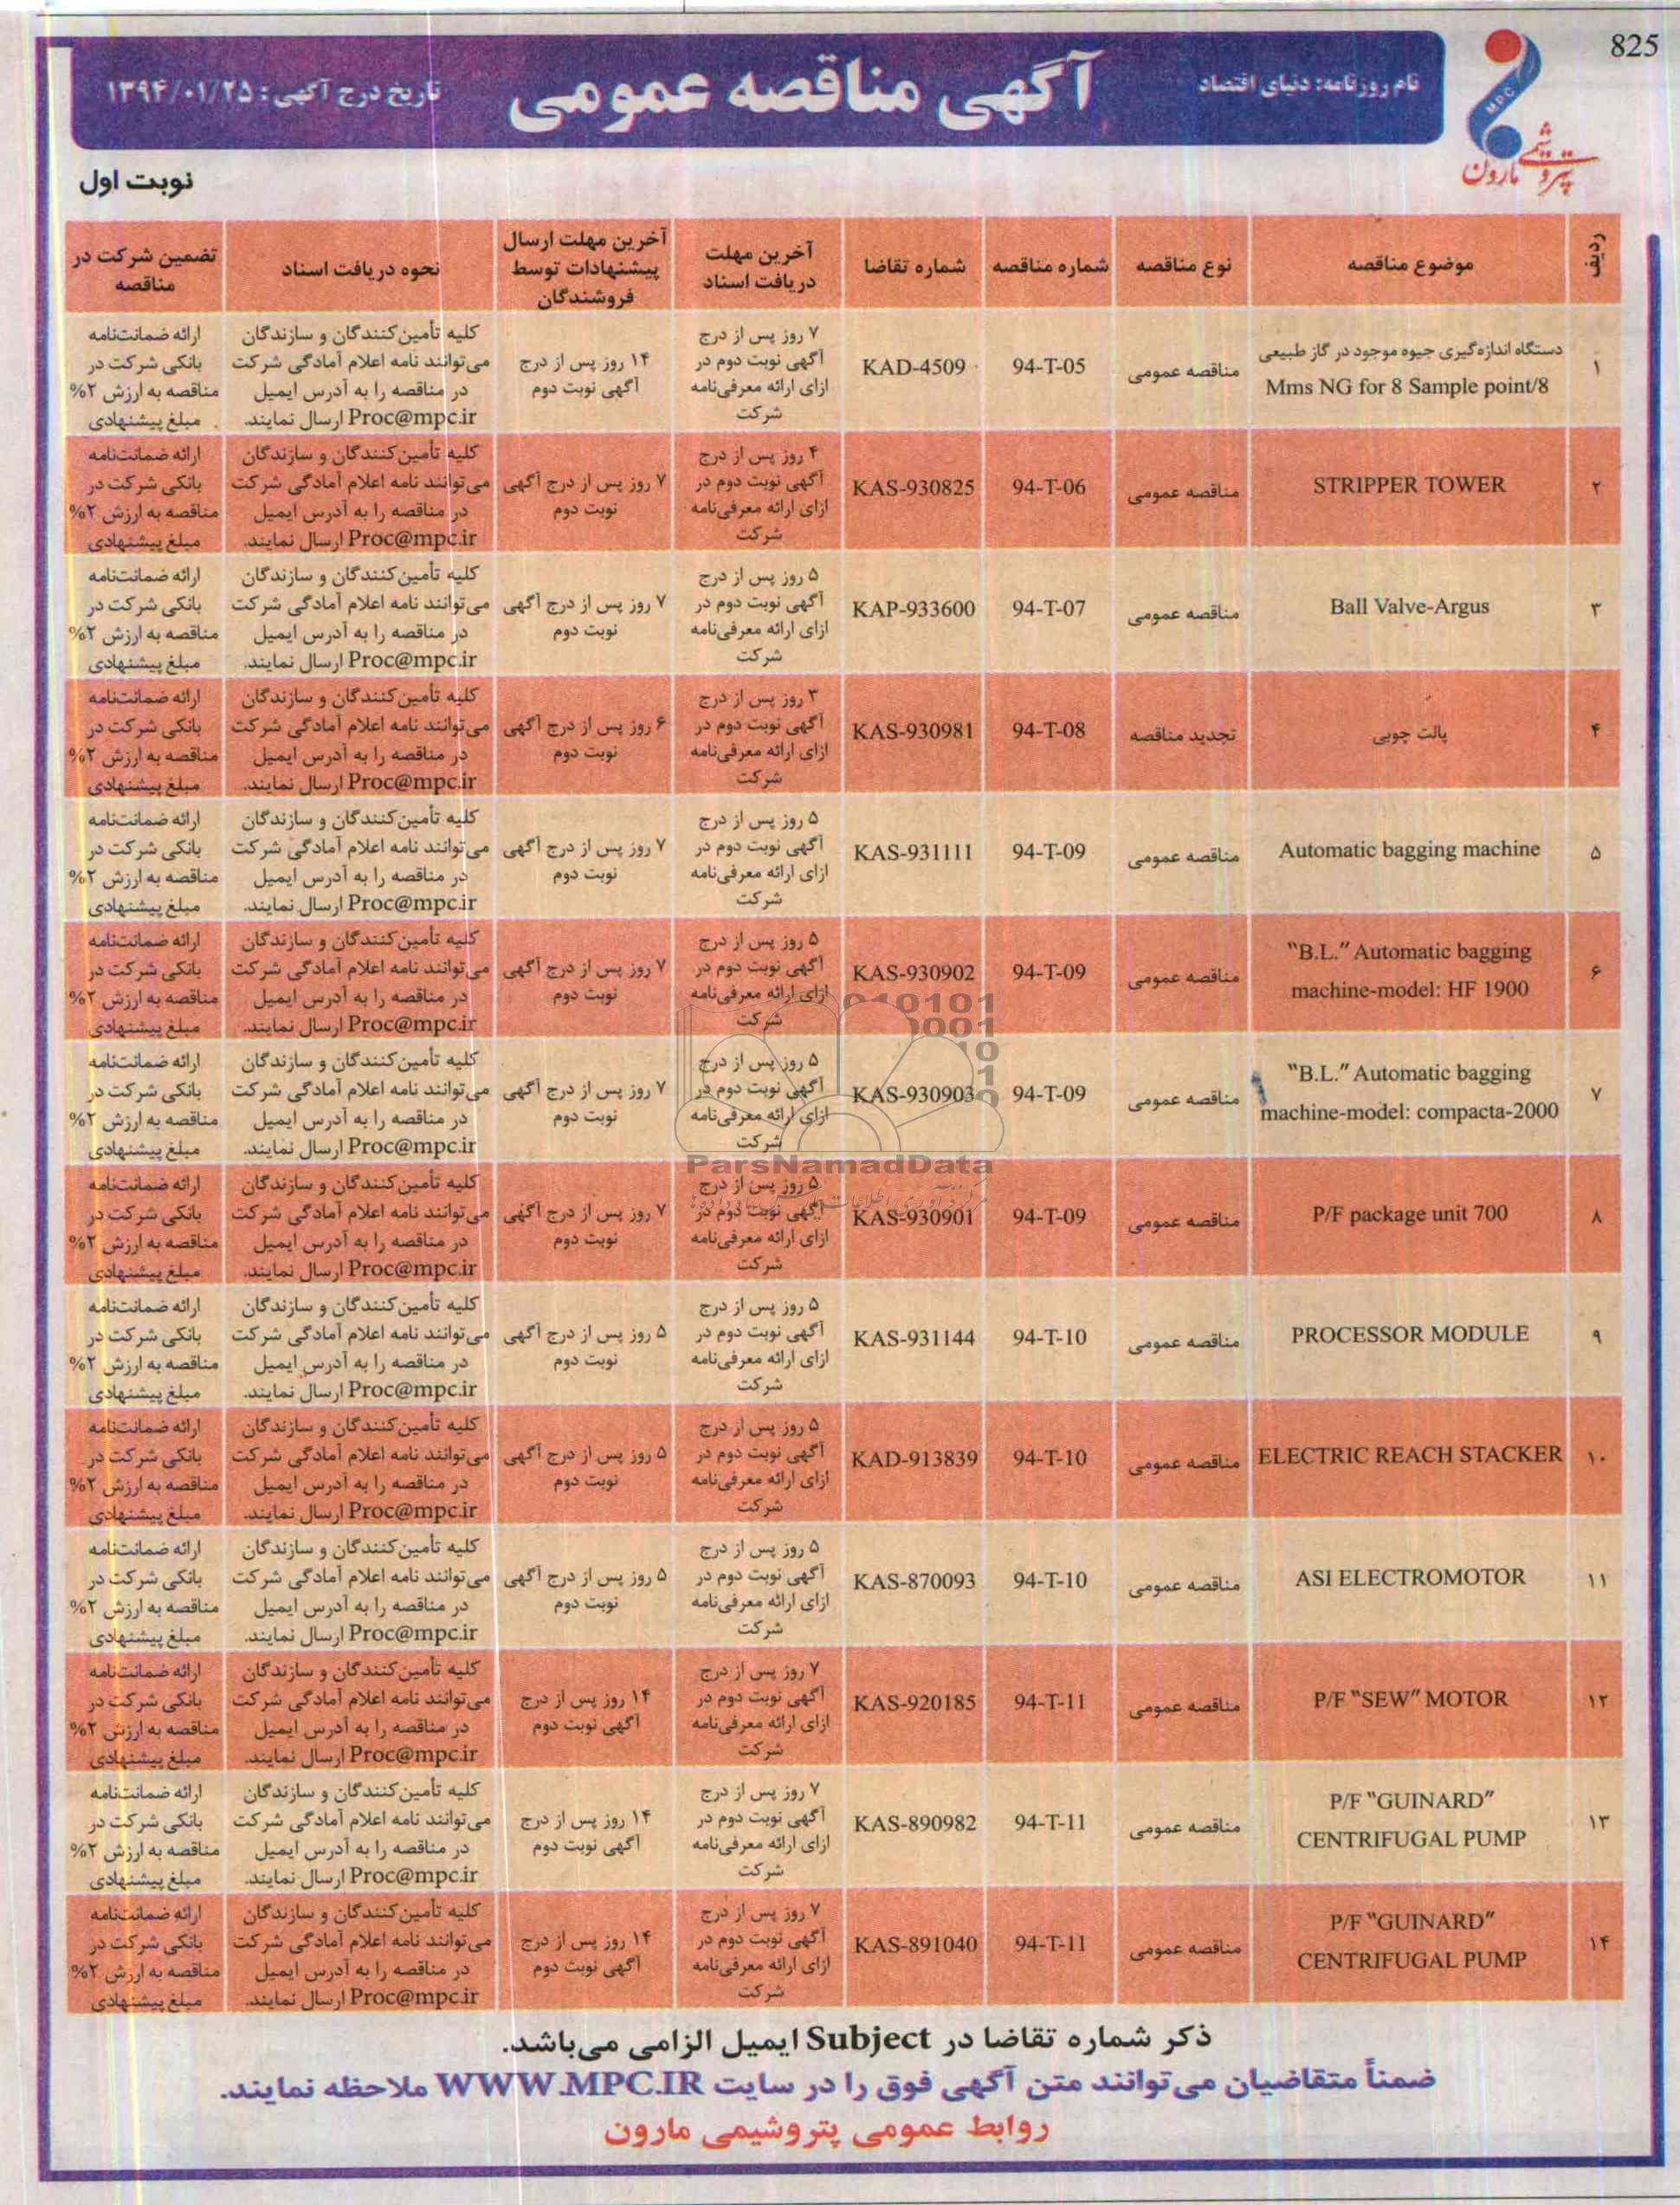 825
MPC
پتروشیمی مارون
نام روزنامه: دنیای اقتصاد
آگهی مناقصه عمومی
تاریخ درج آگهی: ۱۳۹۴/۰۱/۲۵
نوبت اول
ردیف | موضوع مناقصه | نوع مناقصه | شماره مناقصه | شماره تقاضا | آخرین مهلت دریافت اسناد | آخرین مهلت ارسال پیشنهادات توسط فروشندگان | نحوه دریافت اسناد | تضمین شرکت در مناقصه
۱ | دستگاه اندازه‌گیری جیوه موجود در گاز طبیعی Mms NG for 8 Sample point/8 | مناقصه عمومی | 94-T-05 | KAD-4509 | ۷ روز پس از درج آگهی نوبت دوم در ازای ارائه معرفی‌نامه شرکت | ۱۴ روز پس از درج آگهی نوبت دوم | کلیه تأمین‌کنندگان و سازندگان می‌توانند نامه اعلام آمادگی شرکت در مناقصه را به آدرس ایمیل Proc@mpc.ir ارسال نمایند. | ارائه ضمانت‌نامه بانکی شرکت در مناقصه به ارزش ۲% مبلغ پیشنهادی
۲ | STRIPPER TOWER | مناقصه عمومی | 94-T-06 | KAS-930825 | ۴ روز پس از درج آگهی نوبت دوم در ازای ارائه معرفی‌نامه شرکت | ۷ روز پس از درج آگهی نوبت دوم | کلیه تأمین‌کنندگان و سازندگان می‌توانند نامه اعلام آمادگی شرکت در مناقصه را به آدرس ایمیل Proc@mpc.ir ارسال نمایند. | ارائه ضمانت‌نامه بانکی شرکت در مناقصه به ارزش ۲% مبلغ پیشنهادی
۳ | Ball Valve-Argus | مناقصه عمومی | 94-T-07 | KAP-933600 | ۵ روز پس از درج آگهی نوبت دوم در ازای ارائه معرفی‌نامه شرکت | ۷ روز پس از درج آگهی نوبت دوم | کلیه تأمین‌کنندگان و سازندگان می‌توانند نامه اعلام آمادگی شرکت در مناقصه را به آدرس ایمیل Proc@mpc.ir ارسال نمایند. | ارائه ضمانت‌نامه بانکی شرکت در مناقصه به ارزش ۲% مبلغ پیشنهادی
۴ | پالت چوبی | تجدید مناقصه | 94-T-08 | KAS-930981 | ۳ روز پس از درج آگهی نوبت دوم در ازای ارائه معرفی‌نامه شرکت | ۶ روز پس از درج آگهی نوبت دوم | کلیه تأمین‌کنندگان و سازندگان می‌توانند نامه اعلام آمادگی شرکت در مناقصه را به آدرس ایمیل Proc@mpc.ir ارسال نمایند. | ارائه ضمانت‌نامه بانکی شرکت در مناقصه به ارزش ۲% مبلغ پیشنهادی
۵ | Automatic bagging machine | مناقصه عمومی | 94-T-09 | KAS-931111 | ۵ روز پس از درج آگهی نوبت دوم در ازای ارائه معرفی‌نامه شرکت | ۷ روز پس از درج آگهی نوبت دوم | کلیه تأمین‌کنندگان و سازندگان می‌توانند نامه اعلام آمادگی شرکت در مناقصه را به آدرس ایمیل Proc@mpc.ir ارسال نمایند. | ارائه ضمانت‌نامه بانکی شرکت در مناقصه به ارزش ۲% مبلغ پیشنهادی
۶ | "B.L." Automatic bagging machine-model: HF 1900 | مناقصه عمومی | 94-T-09 | KAS-930902 | ۵ روز پس از درج آگهی نوبت دوم در ازای ارائه معرفی‌نامه شرکت | ۷ روز پس از درج آگهی نوبت دوم | کلیه تأمین‌کنندگان و سازندگان می‌توانند نامه اعلام آمادگی شرکت در مناقصه را به آدرس ایمیل Proc@mpc.ir ارسال نمایند. | ارائه ضمانت‌نامه بانکی شرکت در مناقصه به ارزش ۲% مبلغ پیشنهادی
۷ | "B.L." Automatic bagging machine-model: compacta-2000 | مناقصه عمومی | 94-T-09 | KAS-930903 | ۵ روز پس از درج آگهی نوبت دوم در ازای ارائه معرفی‌نامه شرکت | ۷ روز پس از درج آگهی نوبت دوم | کلیه تأمین‌کنندگان و سازندگان می‌توانند نامه اعلام آمادگی شرکت در مناقصه را به آدرس ایمیل Proc@mpc.ir ارسال نمایند. | ارائه ضمانت‌نامه بانکی شرکت در مناقصه به ارزش ۲% مبلغ پیشنهادی
ParsNamadData
۸ | P/F package unit 700 | مناقصه عمومی | 94-T-09 | KAS-930901 | ۵ روز پس از درج آگهی نوبت دوم در ازای ارائه معرفی‌نامه شرکت | ۷ روز پس از درج آگهی نوبت دوم | کلیه تأمین‌کنندگان و سازندگان می‌توانند نامه اعلام آمادگی شرکت در مناقصه را به آدرس ایمیل Proc@mpc.ir ارسال نمایند. | ارائه ضمانت‌نامه بانکی شرکت در مناقصه به ارزش ۲% مبلغ پیشنهادی
۹ | PROCESSOR MODULE | مناقصه عمومی | 94-T-10 | KAS-931144 | ۵ روز پس از درج آگهی نوبت دوم در ازای ارائه معرفی‌نامه شرکت | ۵ روز پس از درج آگهی نوبت دوم | کلیه تأمین‌کنندگان و سازندگان می‌توانند نامه اعلام آمادگی شرکت در مناقصه را به آدرس ایمیل Proc@mpc.ir ارسال نمایند. | ارائه ضمانت‌نامه بانکی شرکت در مناقصه به ارزش ۲% مبلغ پیشنهادی
۱۰ | ELECTRIC REACH STACKER | مناقصه عمومی | 94-T-10 | KAD-913839 | ۵ روز پس از درج آگهی نوبت دوم در ازای ارائه معرفی‌نامه شرکت | ۵ روز پس از درج آگهی نوبت دوم | کلیه تأمین‌کنندگان و سازندگان می‌توانند نامه اعلام آمادگی شرکت در مناقصه را به آدرس ایمیل Proc@mpc.ir ارسال نمایند. | ارائه ضمانت‌نامه بانکی شرکت در مناقصه به ارزش ۲% مبلغ پیشنهادی
۱۱ | ASI ELECTROMOTOR | مناقصه عمومی | 94-T-10 | KAS-870093 | ۵ روز پس از درج آگهی نوبت دوم در ازای ارائه معرفی‌نامه شرکت | ۵ روز پس از درج آگهی نوبت دوم | کلیه تأمین‌کنندگان و سازندگان می‌توانند نامه اعلام آمادگی شرکت در مناقصه را به آدرس ایمیل Proc@mpc.ir ارسال نمایند. | ارائه ضمانت‌نامه بانکی شرکت در مناقصه به ارزش ۲% مبلغ پیشنهادی
۱۲ | P/F "SEW" MOTOR | مناقصه عمومی | 94-T-11 | KAS-920185 | ۷ روز پس از درج آگهی نوبت دوم در ازای ارائه معرفی‌نامه شرکت | ۱۴ روز پس از درج آگهی نوبت دوم | کلیه تأمین‌کنندگان و سازندگان می‌توانند نامه اعلام آمادگی شرکت در مناقصه را به آدرس ایمیل Proc@mpc.ir ارسال نمایند. | ارائه ضمانت‌نامه بانکی شرکت در مناقصه به ارزش ۲% مبلغ پیشنهادی
۱۳ | P/F "GUINARD" CENTRIFUGAL PUMP | مناقصه عمومی | 94-T-11 | KAS-890982 | ۷ روز پس از درج آگهی نوبت دوم در ازای ارائه معرفی‌نامه شرکت | ۱۴ روز پس از درج آگهی نوبت دوم | کلیه تأمین‌کنندگان و سازندگان می‌توانند نامه اعلام آمادگی شرکت در مناقصه را به آدرس ایمیل Proc@mpc.ir ارسال نمایند. | ارائه ضمانت‌نامه بانکی شرکت در مناقصه به ارزش ۲% مبلغ پیشنهادی
۱۴ | P/F "GUINARD" CENTRIFUGAL PUMP | مناقصه عمومی | 94-T-11 | KAS-891040 | ۷ روز پس از درج آگهی نوبت دوم در ازای ارائه معرفی‌نامه شرکت | ۱۴ روز پس از درج آگهی نوبت دوم | کلیه تأمین‌کنندگان و سازندگان می‌توانند نامه اعلام آمادگی شرکت در مناقصه را به آدرس ایمیل Proc@mpc.ir ارسال نمایند. | ارائه ضمانت‌نامه بانکی شرکت در مناقصه به ارزش ۲% مبلغ پیشنهادی
ذکر شماره تقاضا در Subject ایمیل الزامی می‌باشد.
ضمناً متقاضیان می‌توانند متن آگهی فوق را در سایت WWW.MPC.IR ملاحظه نمایند.
روابط عمومی پتروشیمی مارون